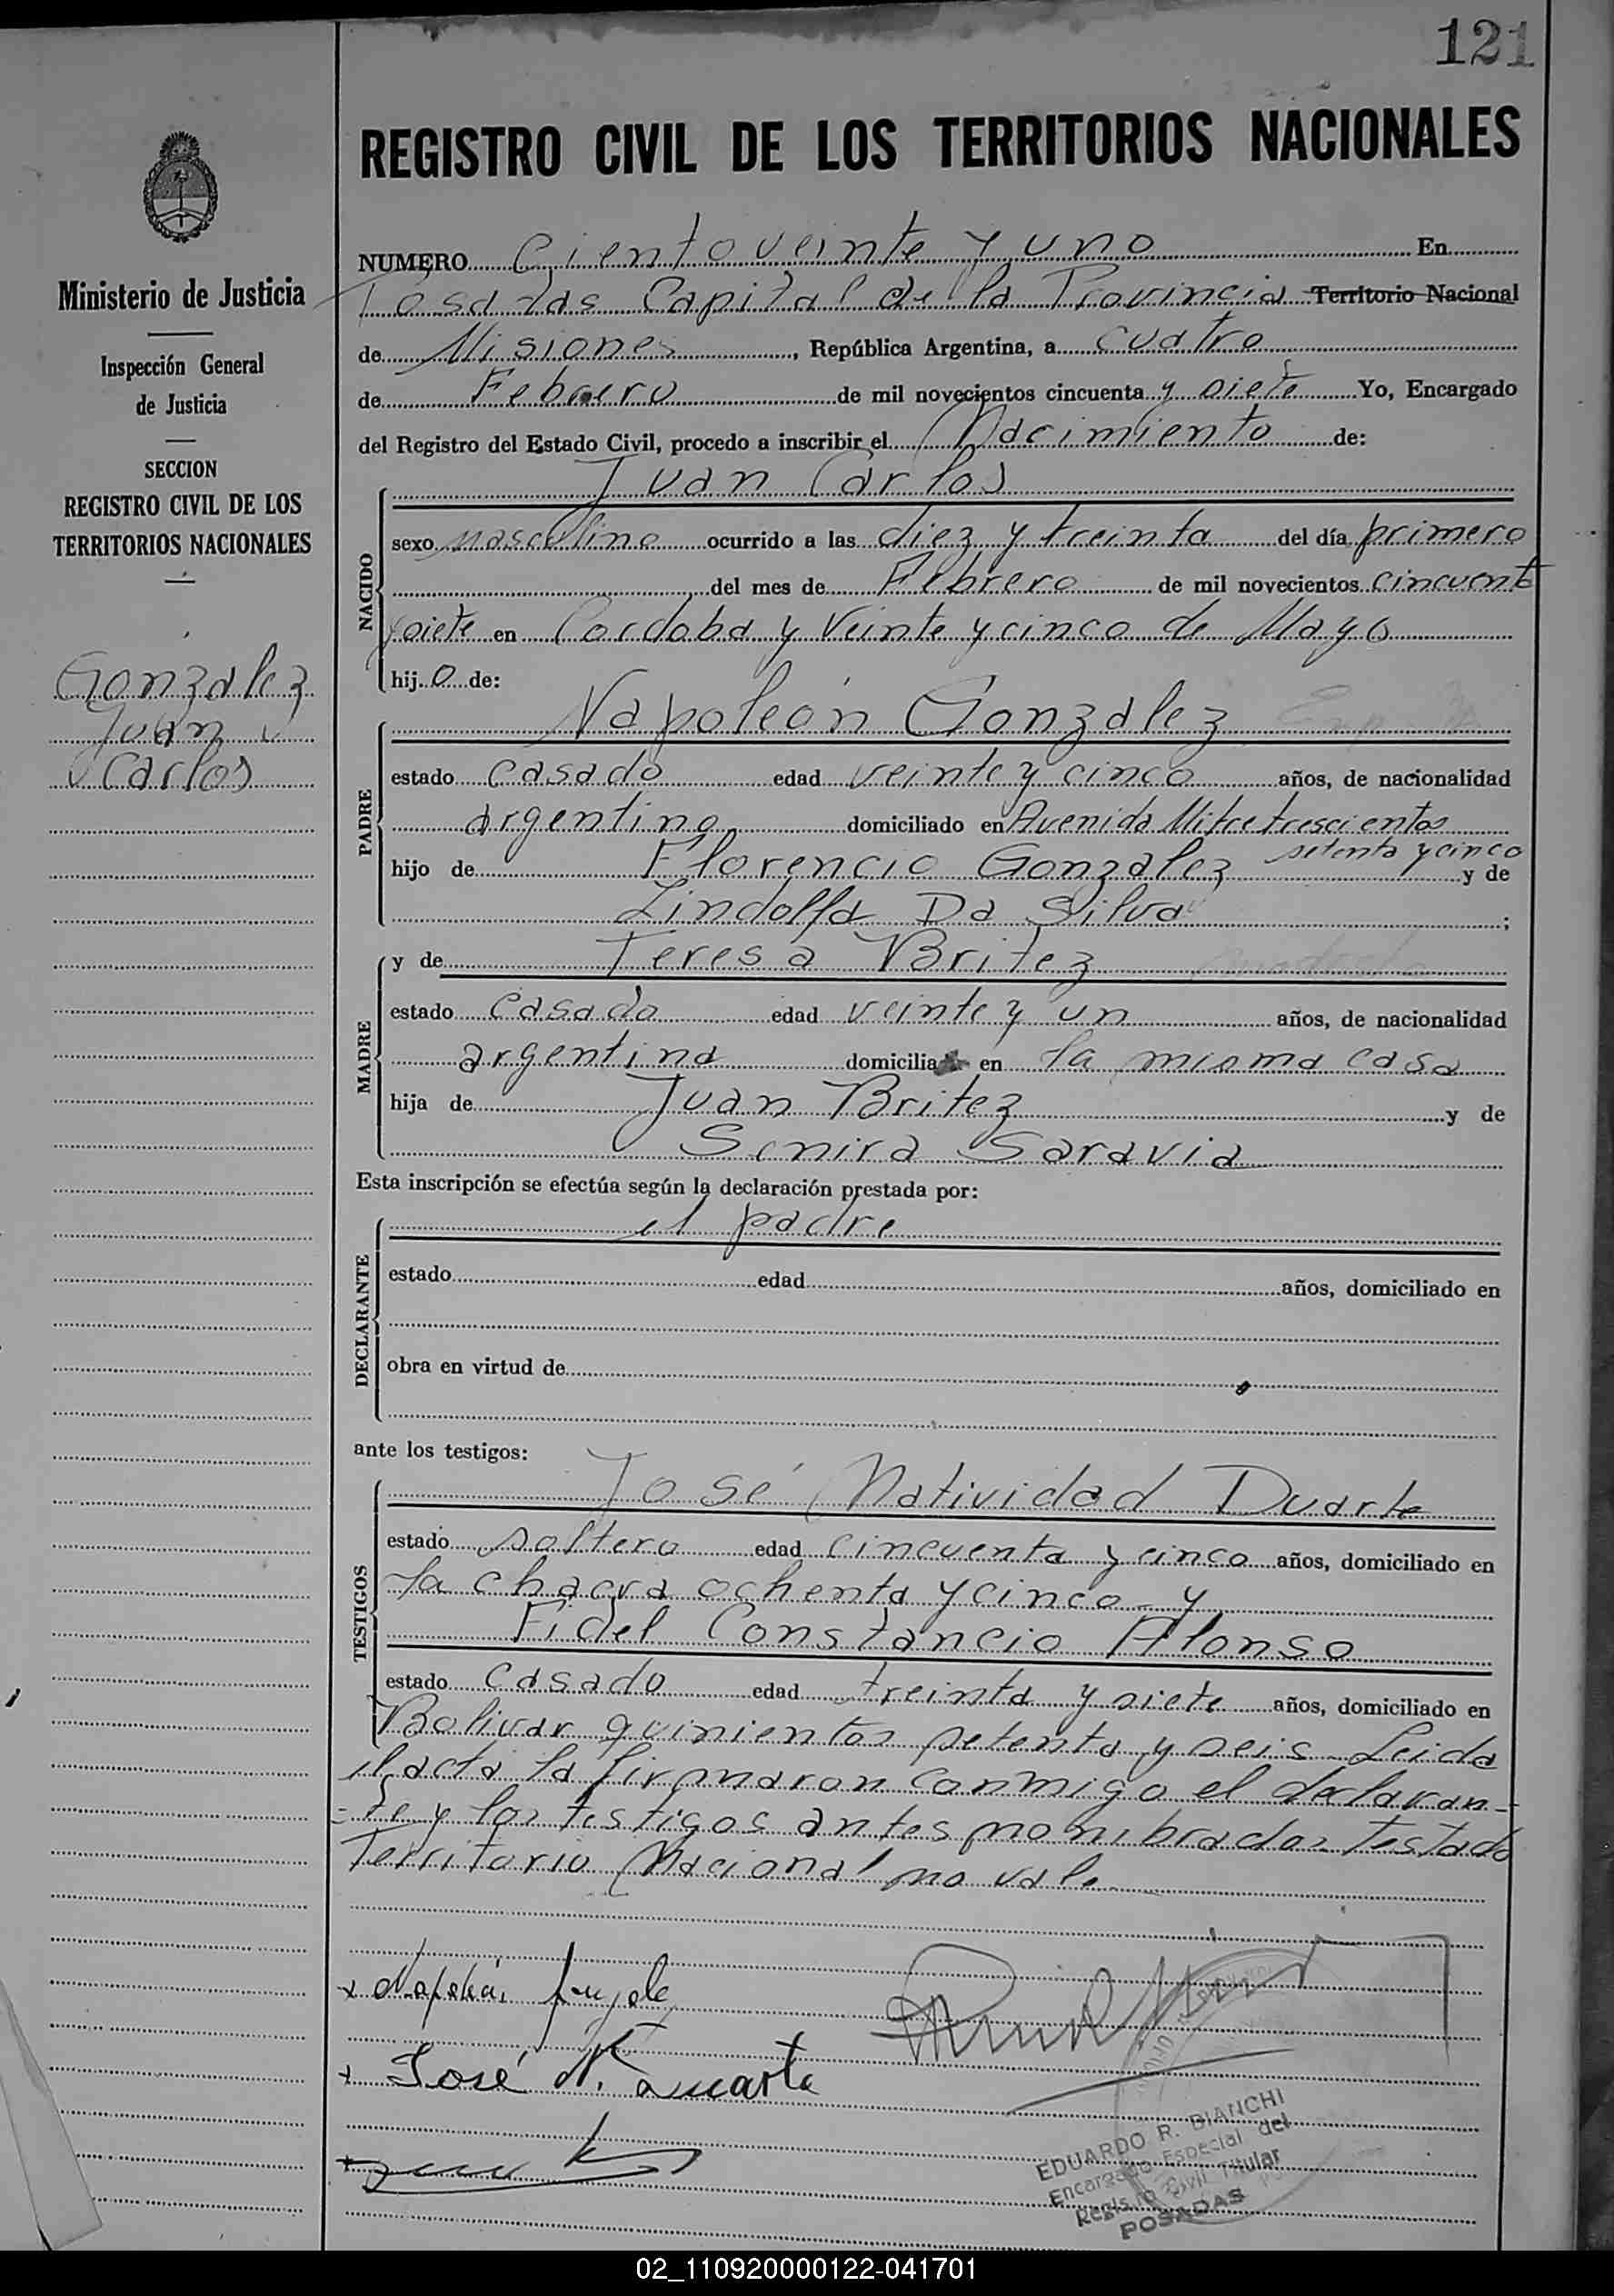 121
REGISTRO CIVIL DE LOS TERRITORIOS NACIONALES
Ministerio de Justicia
Inspección General
de Justicia
SECCION
REGISTRO CIVIL DE LOS
TERRITORIOS NACIONALES
Gonzalez
Juan
Carlos
NUMERO Ciento veinte y uno En
Posadas Capital de la Provincia Territorio Nacional
de Misiones, República Argentina, a cuatro
de Febrero de mil novecientos cincuenta y siete Yo, Encargado
del Registro del Estado Civil, procedo a inscribir el Nacimiento de:
Juan Carlos
NACIDO
sexo masculino ocurrido a las diez y treinta del día primero
del mes de Febrero de mil novecientos cincuent
y siete en Cordoba y Veinte y cinco de Mayo
hij o de:
Napoleón Gonzalez
PADRE
estado casado edad veinte y cinco años, de nacionalidad
argentino domiciliado en Avenida Mitre trescientos
setenta y cinco
hijo de Florencio Gonzalez y de
Lindolfa Da Silva ;
y de Teresa Britez
MADRE
estado casada edad veinte y un años, de nacionalidad
argentina domicilia en la misma casa
hija de Juan Britez y de
Saravia
Esta inscripción se efectúa según la declaración prestada por:
el padre
DECLARANTE
estado edad años, domiciliado en
obra en virtud de
ante los testigos:
José Natividad Duarte
TESTIGOS
estado soltero edad cincuenta y cinco años, domiciliado en
la chacra ochenta y cinco y
Fidel Constancio Alonso
estado casado edad treinta y siete años, domiciliado en
Bolivar quinientos setenta y seis Leida
el acta la firmaron conmigo el declaran-
-te y los testigos antes nombrados. Testado
Territorio Nacional no vale
x Napoleón
x José N. Duarte
EDUARDO R. BIANCHI
Encargado Especial del
Registro Civil Titular
POSADAS
02_110920000122-041701